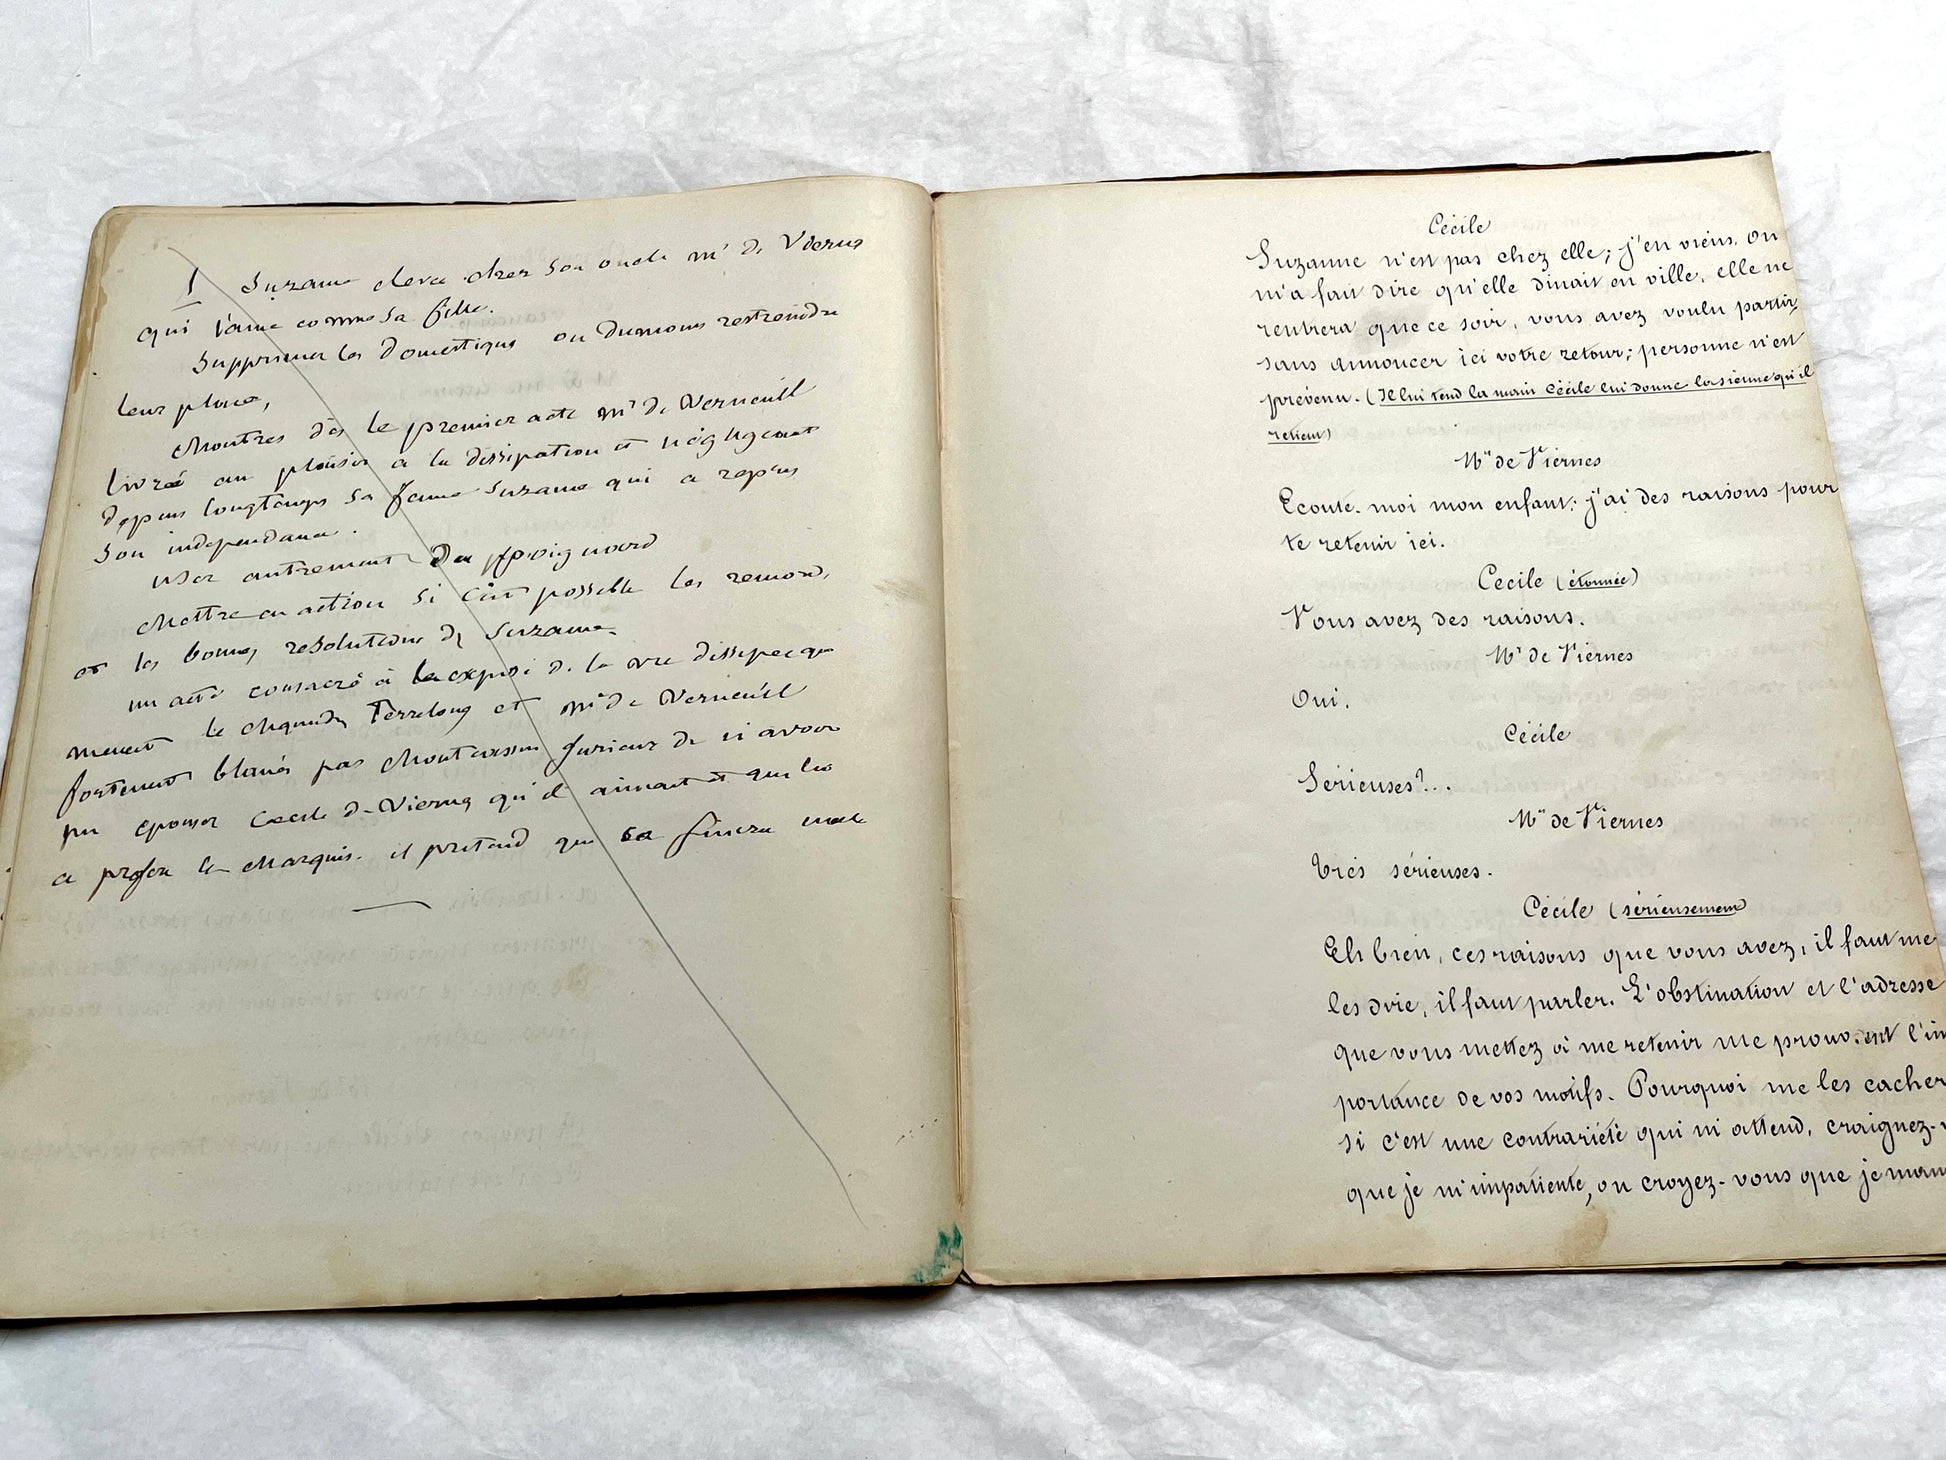 1 Suzanne eleve chez son oncle mr de Viernes
qui l'aime comme sa fille.
Supprimer les domestiques ou dumoins restreindre
leur place,
Montrer dès le premier acte mr de Verneuil
livré au plaisir a la dissipation et négligeant
depuis longtemps sa femme Suzanne qui a repris
son independance.
User autrement du poignard
Mettre en action si c'est possible les remords,
et les bonnes resolutions de Suzanne.
un acte consacré à la de la vie dissipee que
menent le Terrelong et mr de Verneuil
fortement blamés par furieux de n'avoir
pu epouser Cecile de Viernes qu'il aimait et qui lui
a préféré le Marquis. il pretend que sa finira mal
Cécile
Suzanne n'est pas chez elle; j'en viens. On
m'a fait dire qu'elle dinait en ville, elle ne
rentrera que ce soir, vous avez voulu partir
sans annoncer ici votre retour; personne n'est
prévenu. (Il lui tend la main Cécile lui donne la sienne qu'il
retient)
Mr de Viernes
Ecoute-moi mon enfant; j'ai des raisons pour
te retenir ici.
Cecile (étonnée)
Vous avez des raisons.
Mr de Viernes
Oui.
Cécile
Sérieuses?...
Mr de Viernes
Très sérieuses.
Cécile (sérieusement)
Eh bien, ces raisons que vous avez, il faut me
les dire, il faut parler. L'obstination et l'adresse
que vous mettez à me retenir me prouvent l'im
portance de vos motifs. Pourquoi me les cacher
si c'est une contrariété qui m'attend, craignez-
que je m'impatiente, ou croyez-vous que je man